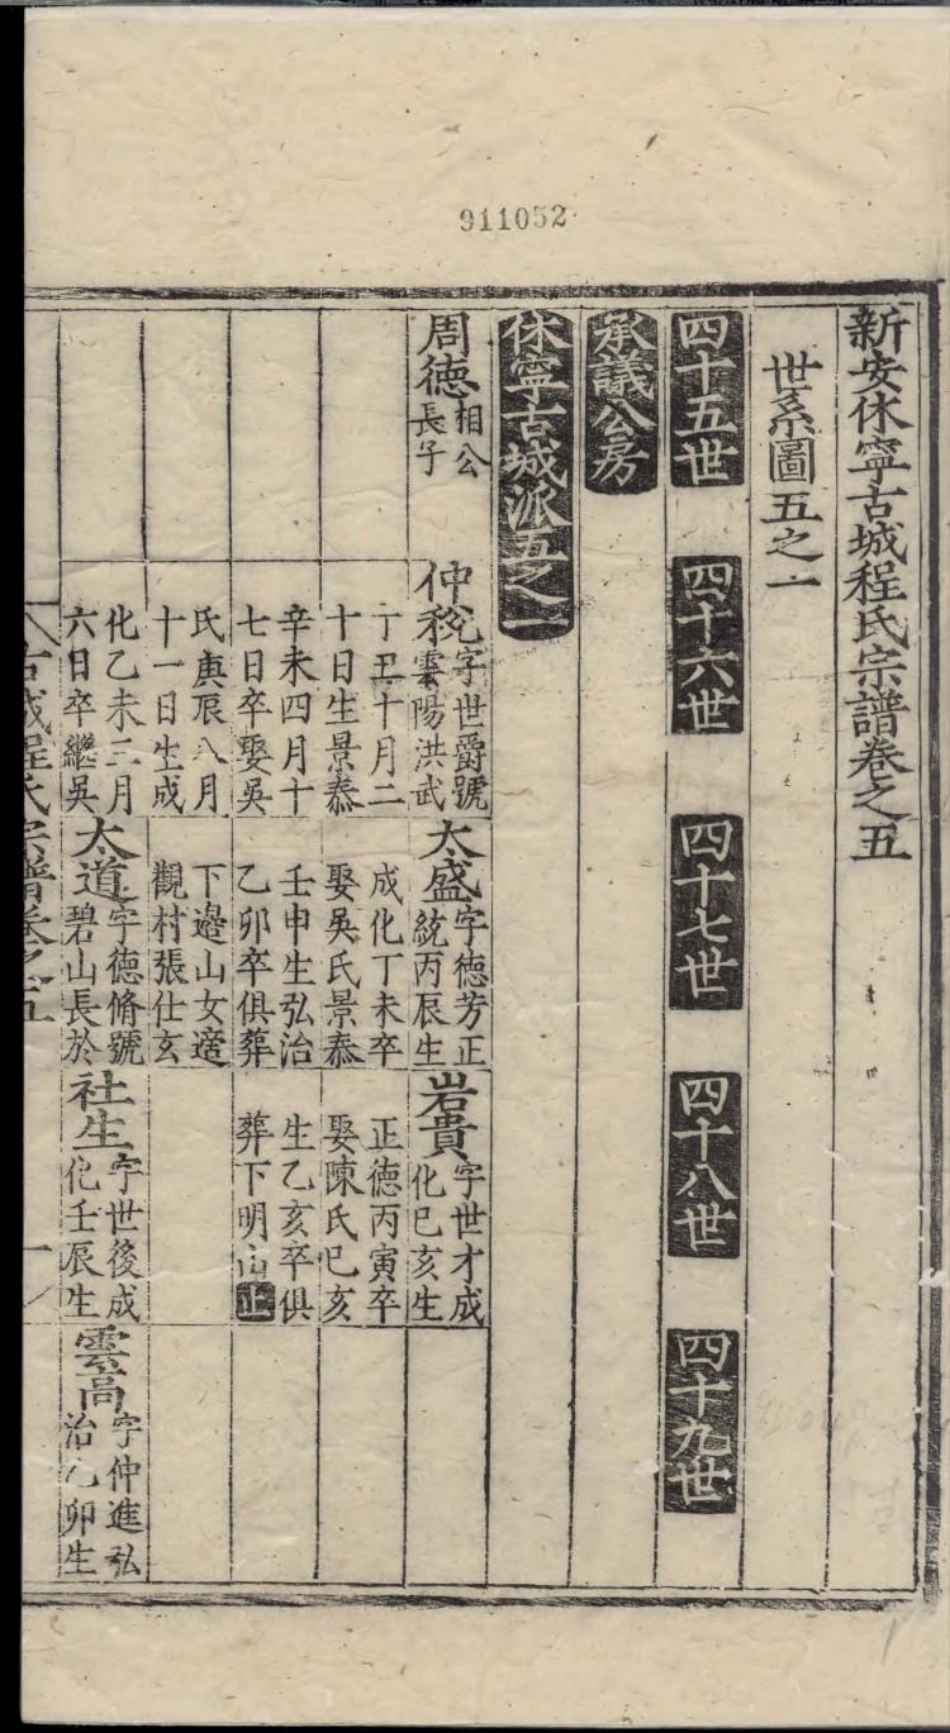 911052
新安休寧古城程氏宗譜卷之五
世系圖五之一
四十五世
四十六世
四十七世
四十八世
四十九世
承議公房
休寧古城派五之一
周德
相公
長子
仲稅
字世爵號
雲陽洪武
丁丑十月二
十日生景泰
辛未四月十
七日卒娶吳
氏庚辰八月
十一日生成
化乙未三月
六日卒繼吳
太盛
字德芳正
統丙辰生
成化丁未卒
娶吳氏景泰
壬申生弘治
乙卯卒俱葬
下邉山女適
觀村張仕玄
太道
字德脩號
碧山長於
岩貴
字世才成
化巳亥生
正德丙寅卒
娶陳氏巳亥
生乙亥卒俱
葬下明山止
社生
字世後成
化壬辰生
雲高
字仲進弘
治乙卯生
古城程氏宗譜卷之五
一